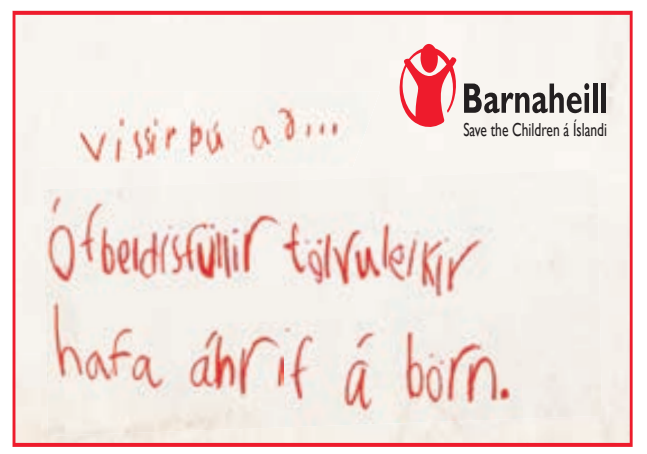 Barnaheill
Save the Children á Íslandi
vissir þú að...
Ófbeldisfullir tölvuleikir
hafa áhrif á börn.